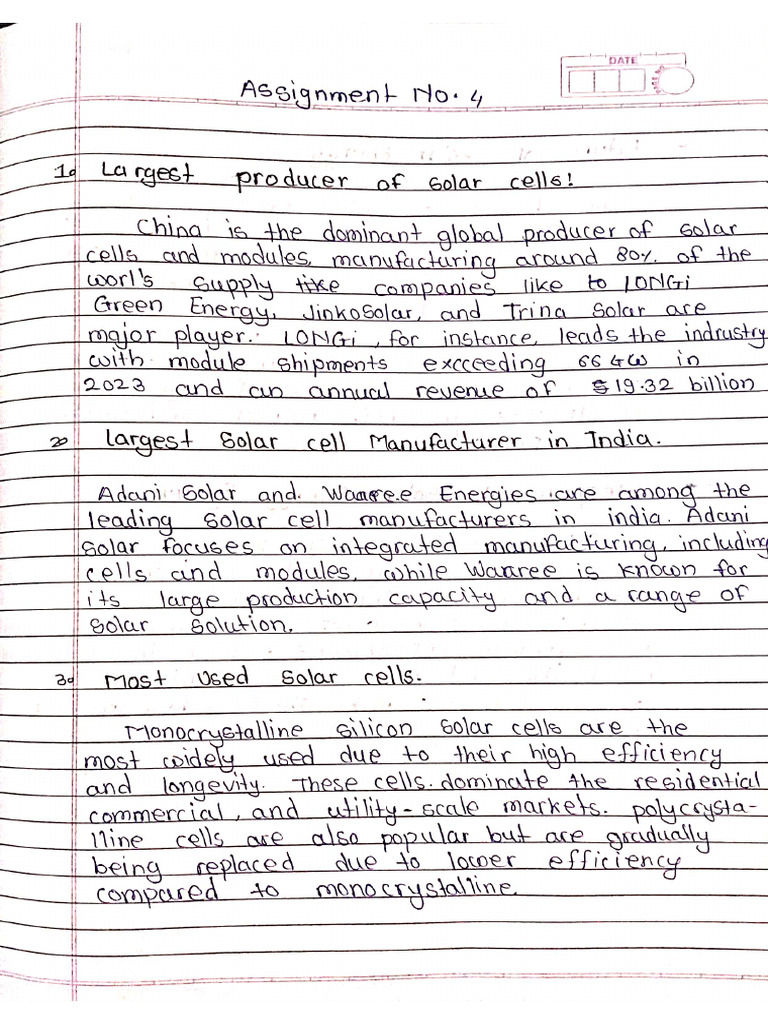 DATE
Assignment No. 4
1. Largest producer of solar cells!
China is the dominant global producer of solar
cells and modules, manufacturing around 80% of the
worl's supply like companies like to LONGi
Green Energy, JinkoSolar, and Trina Solar are
major player. LONGi, for instance, leads the indrustry
with module shipments excceeding 66 GW in
2023 and an annual revenue of $19.32 billion
2. Largest Solar cell Manufacturer in India.
Adani Solar and Waaree Energies are among the
leading solar cell manufacturers in india. Adani
solar focuses on integrated manufacturing, including
cells and modules, while Waaree is known for
its large production capacity and a range of
solar solution.
3. Most Used Solar cells.
Monocrystalline silicon solar cells are the
most widely used due to their high efficiency
and longevity. These cells dominate the residential
commercial, and utility-scale markets. polycrysta-
lline cells are also popular but are gradually
being replaced due to lower efficiency
compared to monocrystalline.